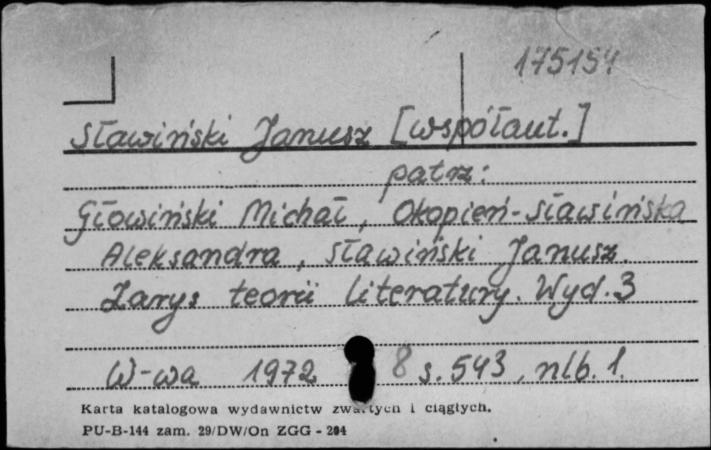 175154
Sławiński Janusz [współaut.]
patrz:
Głowiński Michał, Okopień-Sławińska
Aleksandra, Sławiński Janusz.
Zarys teorii literatury. Wyd. 3
W-wa 1972 8 s. 543, nlb. 1.
Karta katalogowa wydawnictw zwartych i ciągłych.
PU-B-144 zam. 29/DW/On ZGG - 204